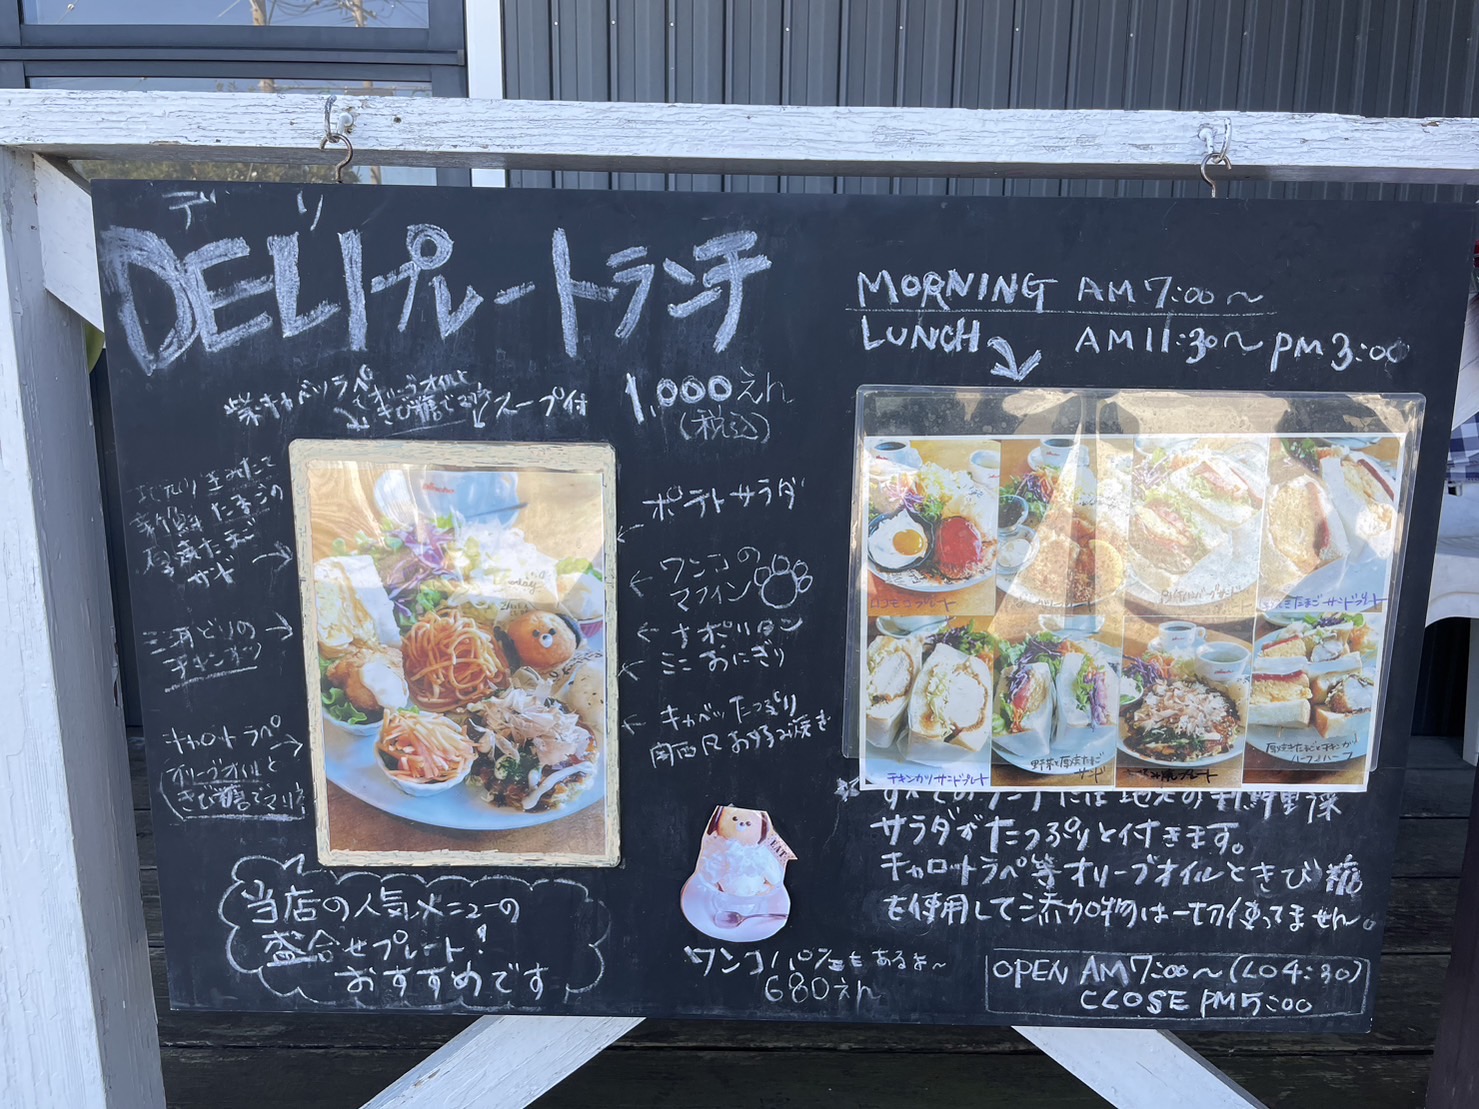 デリ
DELIプレートランチ
紫キャベツラペ
オリーブオイルと
きび糖で
スープ付
1,000えん
(税込)
新鮮たまごの
厚焼たまご
サンド
三河どりの
チキンカツ
キャロットラペ
オリーブオイルと
きび糖でマリネ
ポテトサラダ
ワンコの
マフィン
ナポリタン
ミニおにぎり
キャベツたっぷり
関西風お好み焼き
当店の人気メニューの
盛合せプレート!
おすすめです
EAT
ワンコパフェもあるよ~
680えん
MORNING AM7:00~
LUNCH AM11:30~PM3:00
ロコモコプレート
たまごサンドプレート
チキンカツサンドプレート
野菜と厚焼たまご
サンド
プレート
厚焼きたまごとチキンカツ
ハーフ&ハーフ
すべてのランチには地元の新鮮野菜
サラダがたっぷりと付きます。
キャロットラペ等オリーブオイルときび糖
を使用して添加物は一切使ってません。
OPEN AM7:00~(LO4:30)
CLOSE PM5:00